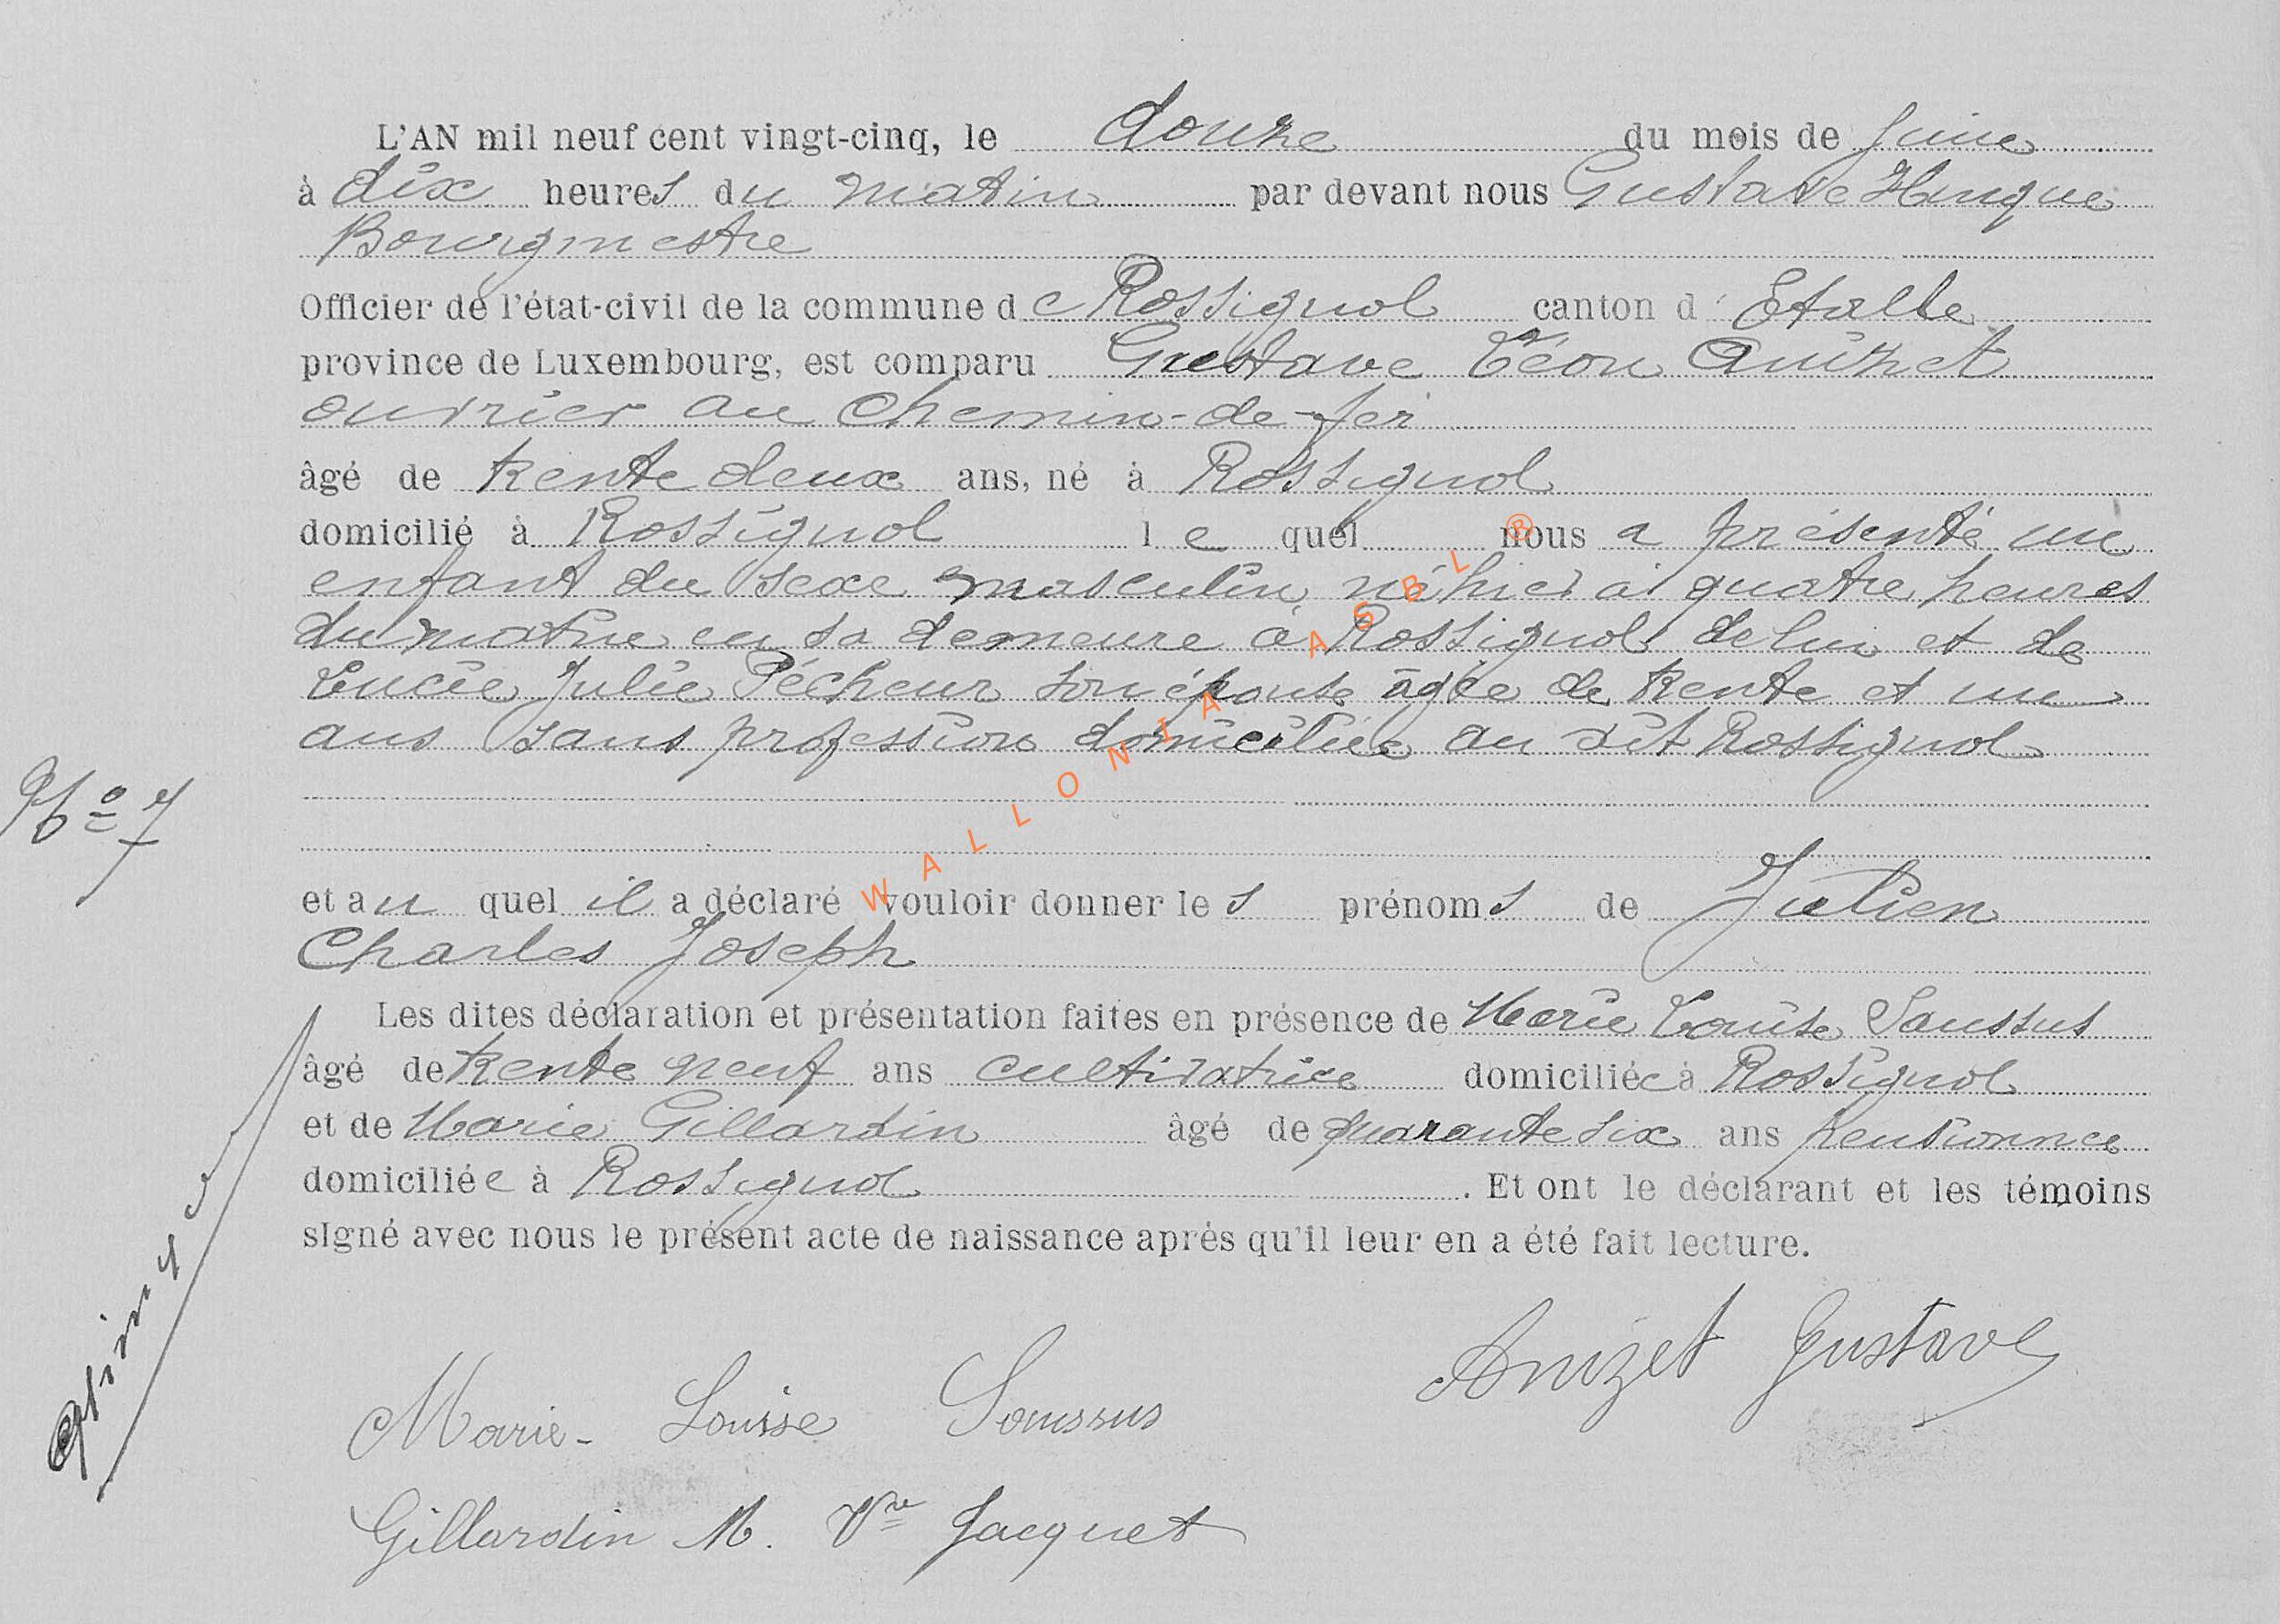 L'AN mil neuf cent vingt-cinq, le douze du mois de Juin
à dix heures du matin par devant nous Gustave Hinque
Bourgmestre
Officier de l'état-civil de la commune de Rossignol canton d' Etalle
province de Luxembourg, est comparu Gustave Léon Anizet
ouvrier au chemin-de-fer
âgé de trente deux ans, né à Rossignol
domicilié à Rossignol lequel nous a présenté un
enfant du sexe masculin, né hier à quatre heures
du matin en sa demeure à Rossignol de lui et de
Lucie Julie Pécheur son épouse âgée de trente et un
ans sans profession domiciliée au dit Rossignol
N° 7
et au quel il a déclaré vouloir donner les prénoms de Julien
Charles Joseph
Les dites déclaration et présentation faites en présence de Marie Louise Saussus
âgé de trente neuf ans cultivatrice domiciliée à Rossignol
et de Marie Gillardin âgé de quarante six ans pensionnée
domiciliée à Rossignol. Et ont le déclarant et les témoins
signé avec nous le présent acte de naissance après qu'il leur en a été fait lecture.
Anizet Gustave
Marie-Louise Saussus
Gillardin M. Vve Jacquet
WALLONIA ASBL ®